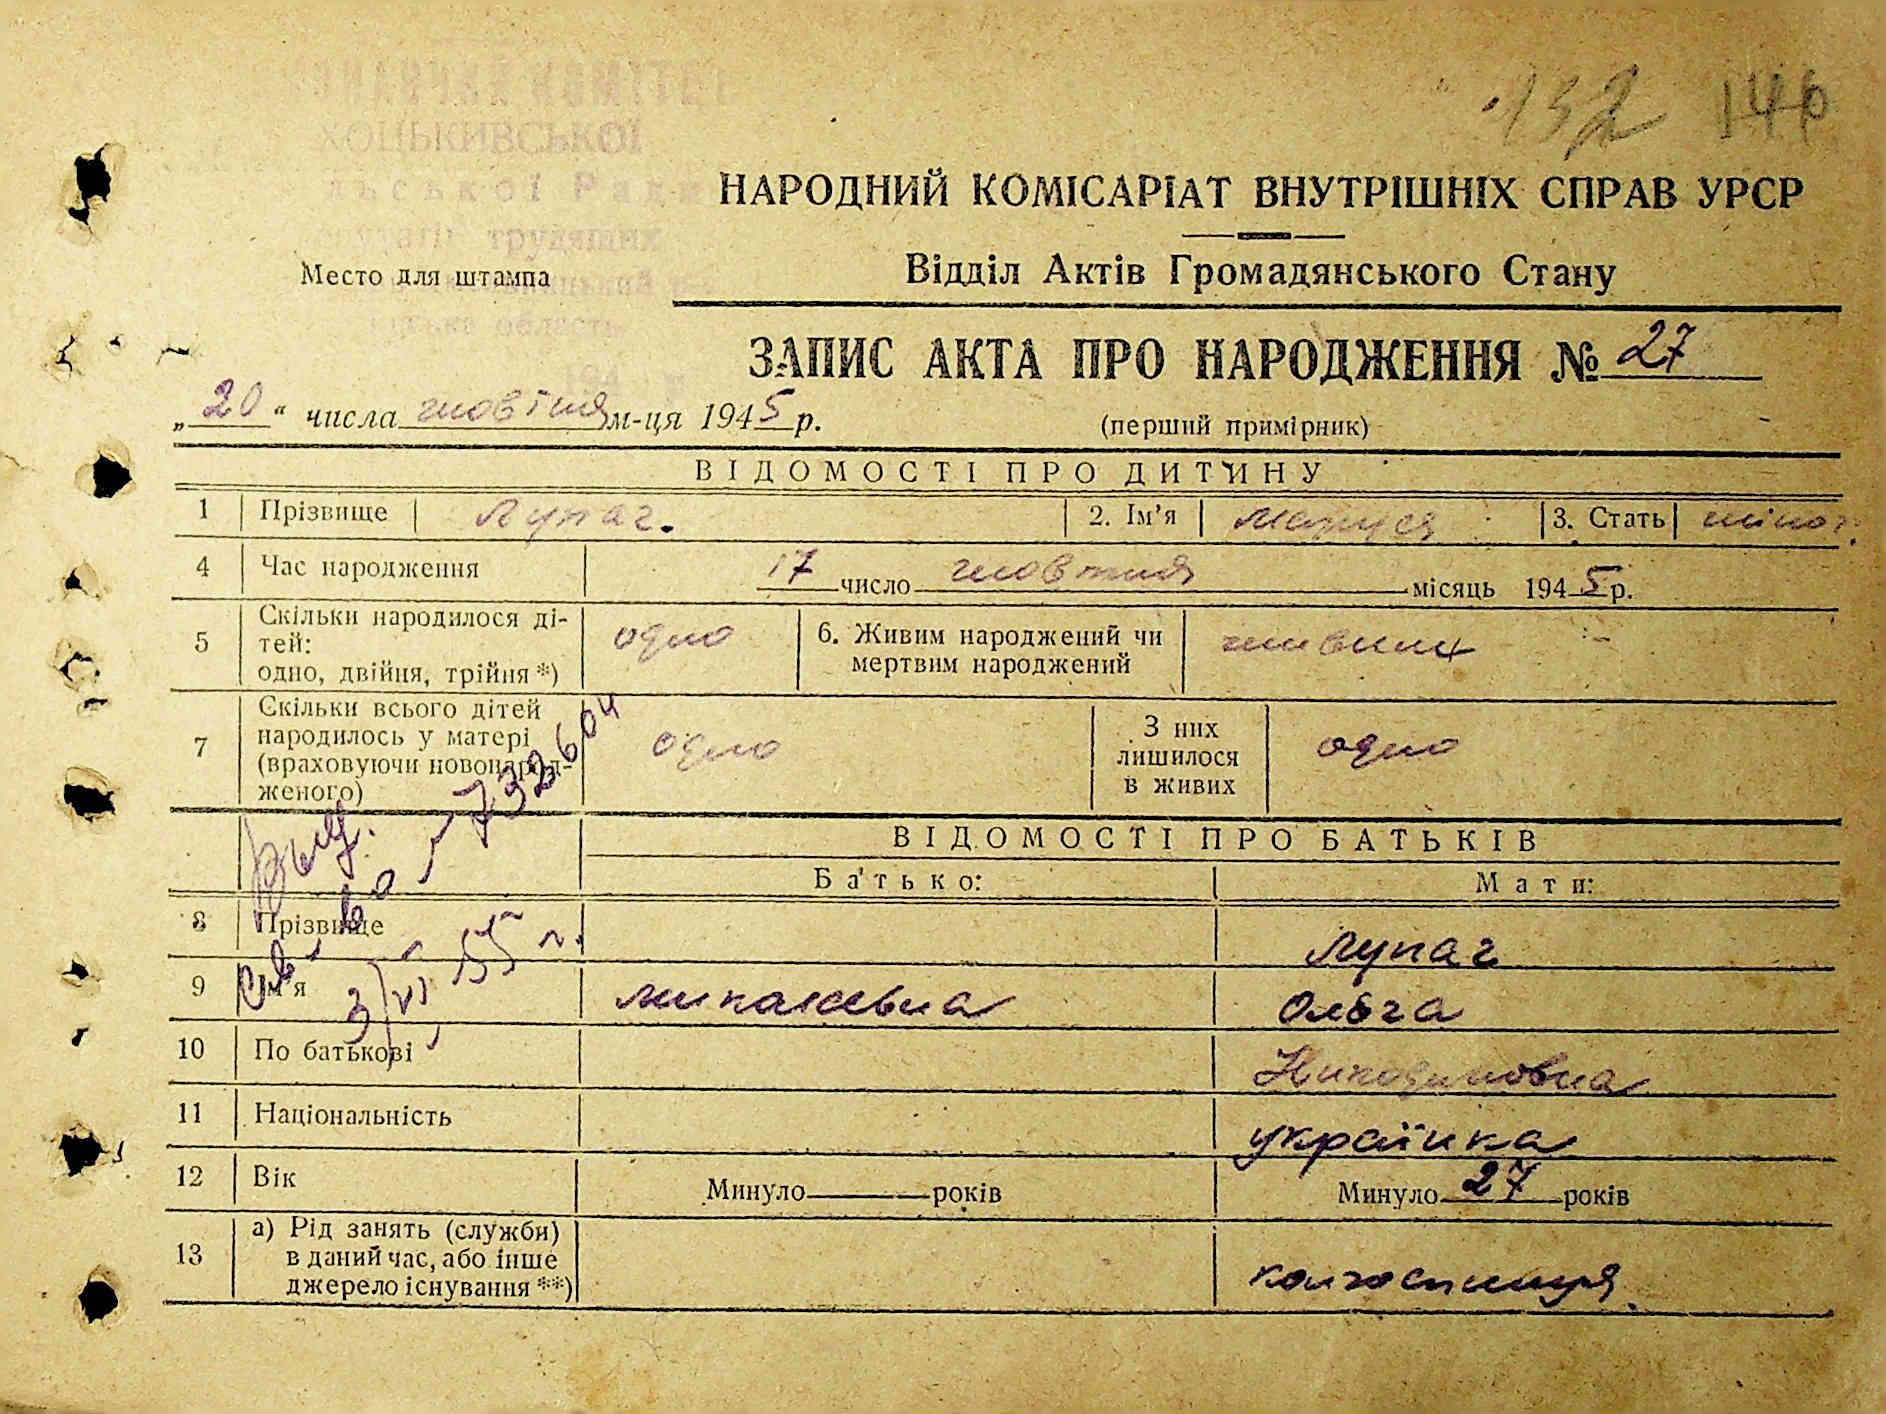 132 146
ХОЦЬКИВСЬКОЇ
НАРОДНИЙ КОМІСАРІАТ ВНУТРІШНІХ СПРАВ УРСР
трудящих
Место для штампа
Відділ Актів Громадянського Стану
область
ЗАПИС АКТА ПРО НАРОДЖЕННЯ № 27
„20“ числа жовтня м-ця 1945 р.
(перший примірник)
ВІДОМОСТІ ПРО ДИТИНУ
1 Прізвище Лупач. 2. Ім'я Маруся 3. Стать жіноч.
4 Час народження 17 число жовтня місяць 1945 р.
5 Скільки народилося ді-
тей:
одно, двійня, трійня *) одно 6. Живим народжений чи
мертвим народжений живим
7 Скільки всього дітей
народилось у матері
(враховуючи новонарод-
женого) одно З них
лишилося
в живих одно
Выд. 732604
св. во
3/VI 55 г.
ВІДОМОСТІ ПРО БАТЬКІВ
Батько: Мати:
8 Прізвище Лупач
9 Ім'я Ольга
10 По батькові Никодимовна
11 Національність українка
12 Вік Минуло років Минуло 27 років
13 а) Рід занять (служби)
в даний час, або інше
джерело існування **) колгоспниця